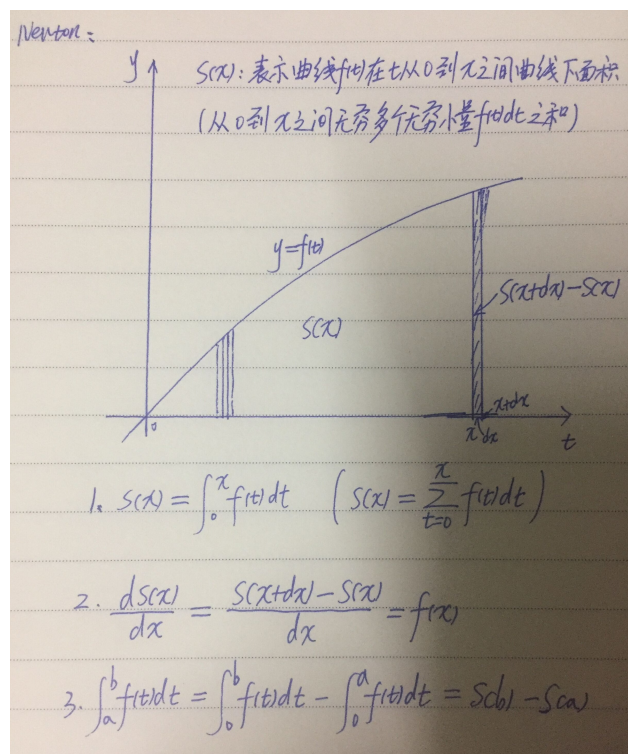 Newton:
y
S(x): 表示曲线f(t)在t从0到x之间曲线下面积
(从0到x之间无穷多个无穷小量f(t)dt之和)
y=f(t)
S(x+dx)-S(x)
S(x)
x+dx
0
x dx
t
1. S(x) = ∫₀ˣ f(t)dt (S(x) = Σ_{t=0}^{x} f(t)dt)
2. dS(x)/dx = (S(x+dx)-S(x))/dx = f(x)
3. ∫ₐᵇ f(t)dt = ∫₀ᵇ f(t)dt - ∫₀ᵃ f(t)dt = S(b) - S(a)